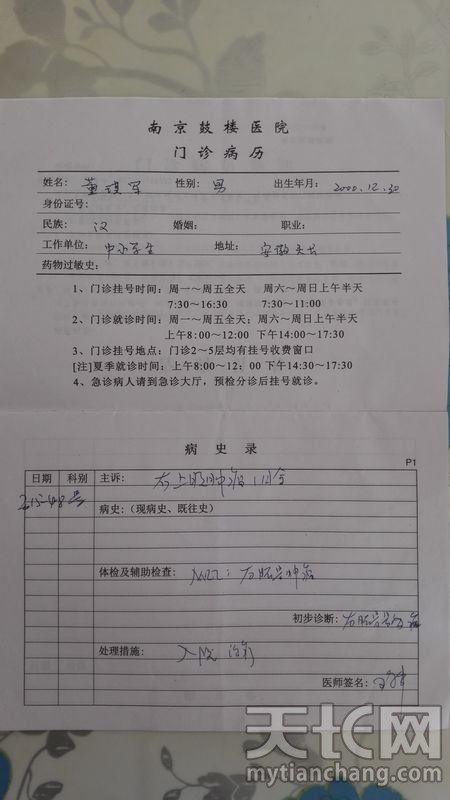 南京鼓楼医院
门诊病历
姓名: 董 军 性别: 男 出生年月: 2000.12.30
身份证号:
民族: 汉 婚姻: 职业:
工作单位: 中小学生 地址: 安徽天长
药物过敏史:
1、门诊挂号时间: 周一~周五全天 周六~周日上午半天
7:30~16:30 7:30~11:00
2、门诊就诊时间: 周一~周五全天; 周六~周日上午半天
上午8:00~12:00 下午14:00~17:30
3、门诊挂号地点: 门诊2~5层均有挂号收费窗口
[注]夏季就诊时间: 上午8:00~12:00 下午14:30~17:30
4、急诊病人请到急诊大厅,预检分诊后挂号就诊。
病 史 录
P1
日期 科别 主诉: 右上
病史: (现病史、既往史)
体检及辅助检查: 右
初步诊断: 右
处理措施: 入院治疗
医师签名:
天长网
mytianchang.com